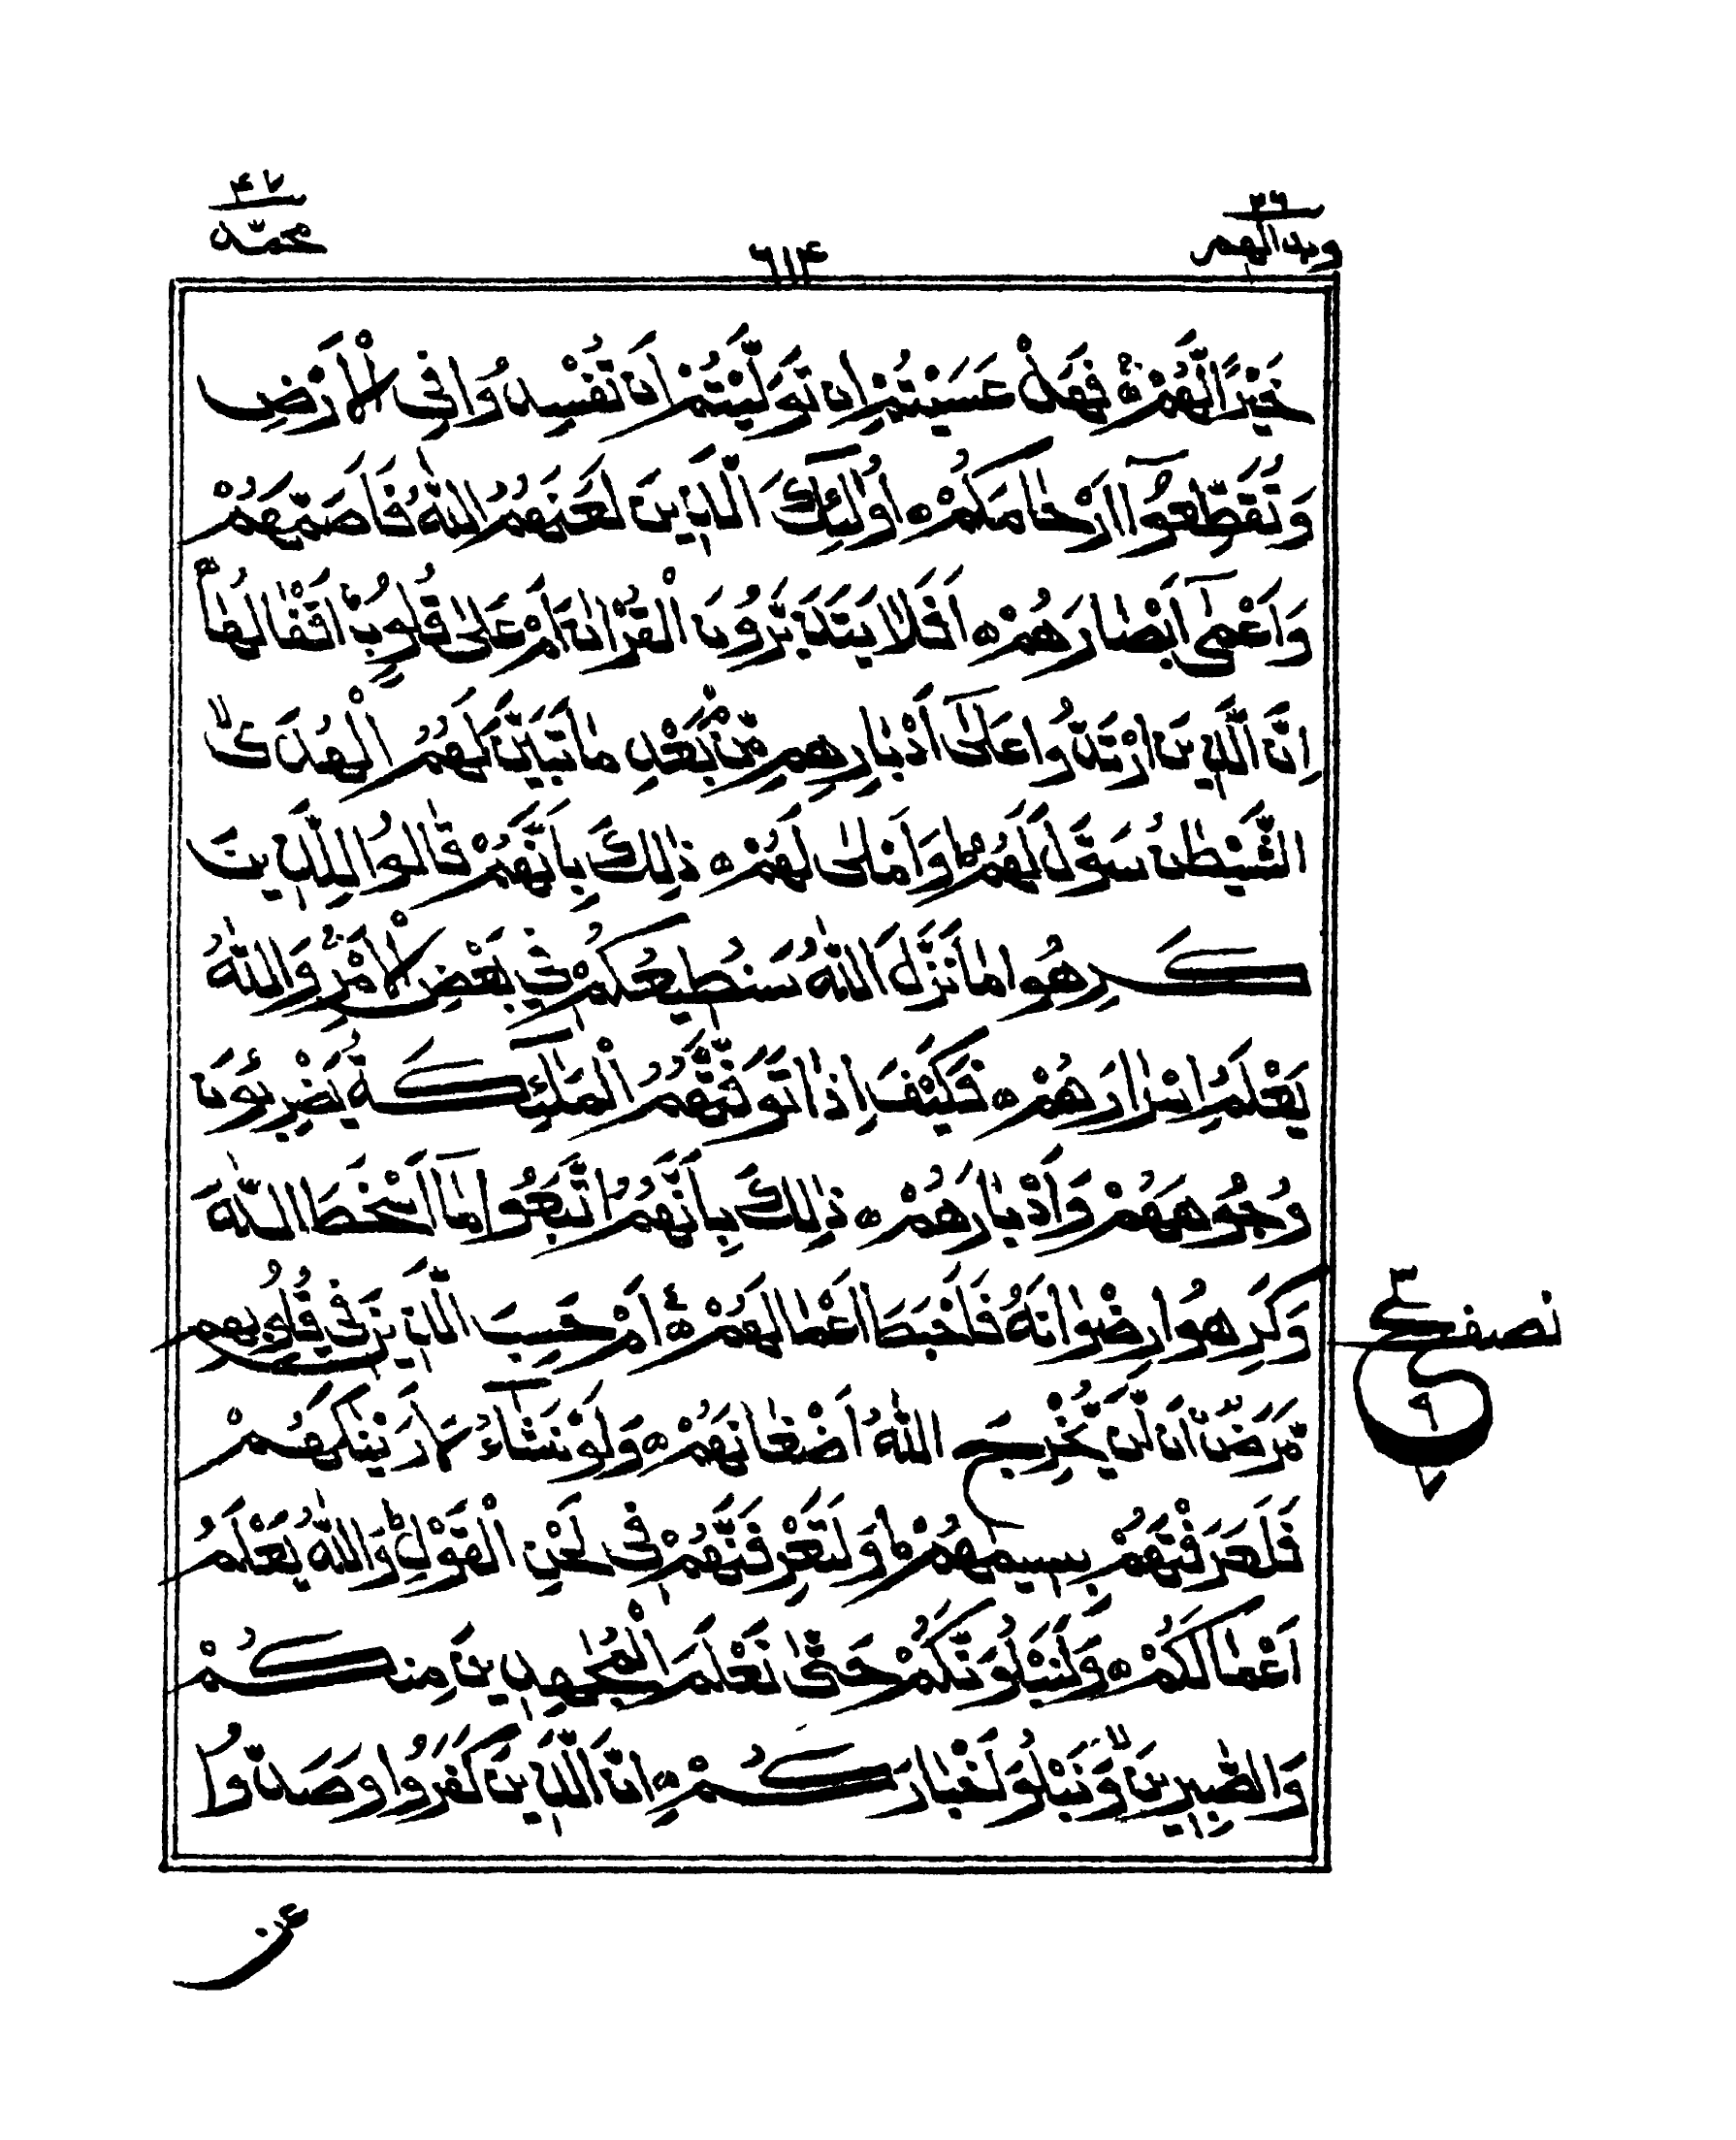 ۲۶
وبدالهم
۶۱۴
۴۷
محمّد
خَيْرًا لَّهُمْ ۚ فَهَلْ عَسَيْتُمْ اِنْ تَوَلَّيْتُمْ اَنْ تُفْسِدُوْا فِى الْاَرْضِ
وَتُقَطِّعُوْٓا اَرْحَامَكُمْ ۝ اُولٰٓئِكَ الَّذِيْنَ لَعَنَهُمُ اللّٰهُ فَاَصَمَّهُمْ
وَاَعْمٰٓى اَبْصَارَهُمْ ۝ اَفَلَا يَتَدَبَّرُوْنَ الْقُرْاٰنَ اَمْ عَلٰى قُلُوْبٍ اَقْفَالُهَا ۝
اِنَّ الَّذِيْنَ ارْتَدُّوْا عَلٰٓى اَدْبَارِهِمْ مِّنْۢ بَعْدِ مَا تَبَيَّنَ لَهُمُ الْهُدَى ۙ
الشَّيْطٰنُ سَوَّلَ لَهُمْ ؕ وَاَمْلٰى لَهُمْ ۝ ذٰلِكَ بِاَنَّهُمْ قَالُوْا لِلَّذِيْنَ
كَرِهُوْا مَا نَزَّلَ اللّٰهُ سَنُطِيْعُكُمْ فِىْ بَعْضِ الْاَمْرِ ۚ وَاللّٰهُ
يَعْلَمُ اِسْرَارَهُمْ ۝ فَكَيْفَ اِذَا تَوَفَّتْهُمُ الْمَلٰٓئِكَةُ يَضْرِبُوْنَ
وُجُوْهَهُمْ وَاَدْبَارَهُمْ ۝ ذٰلِكَ بِاَنَّهُمُ اتَّبَعُوْا مَآ اَسْخَطَ اللّٰهَ
وَكَرِهُوْا رِضْوَانَهٗ فَاَحْبَطَ اَعْمَالَهُمْ ۝ اَمْ حَسِبَ الَّذِيْنَ فِىْ قُلُوْبِهِمْ
مَّرَضٌ اَنْ لَّنْ يُّخْرِجَ اللّٰهُ اَضْغَانَهُمْ ۝ وَلَوْ نَشَآءُ لَاَرَيْنٰكَهُمْ
فَلَعَرَفْتَهُمْ بِسِيْمٰهُمْ ؕ وَلَتَعْرِفَنَّهُمْ فِىْ لَحْنِ الْقَوْلِ ؕ وَاللّٰهُ يَعْلَمُ
اَعْمَالَكُمْ ۝ وَلَنَبْلُوَنَّكُمْ حَتّٰى نَعْلَمَ الْمُجٰهِدِيْنَ مِنْكُمْ
وَالصّٰبِرِيْنَ ۙ وَنَبْلُوَا۟ اَخْبَارَكُمْ ۝ اِنَّ الَّذِيْنَ كَفَرُوْا وَصَدُّوْا
نصف
۳
ع
۹
۷
عن